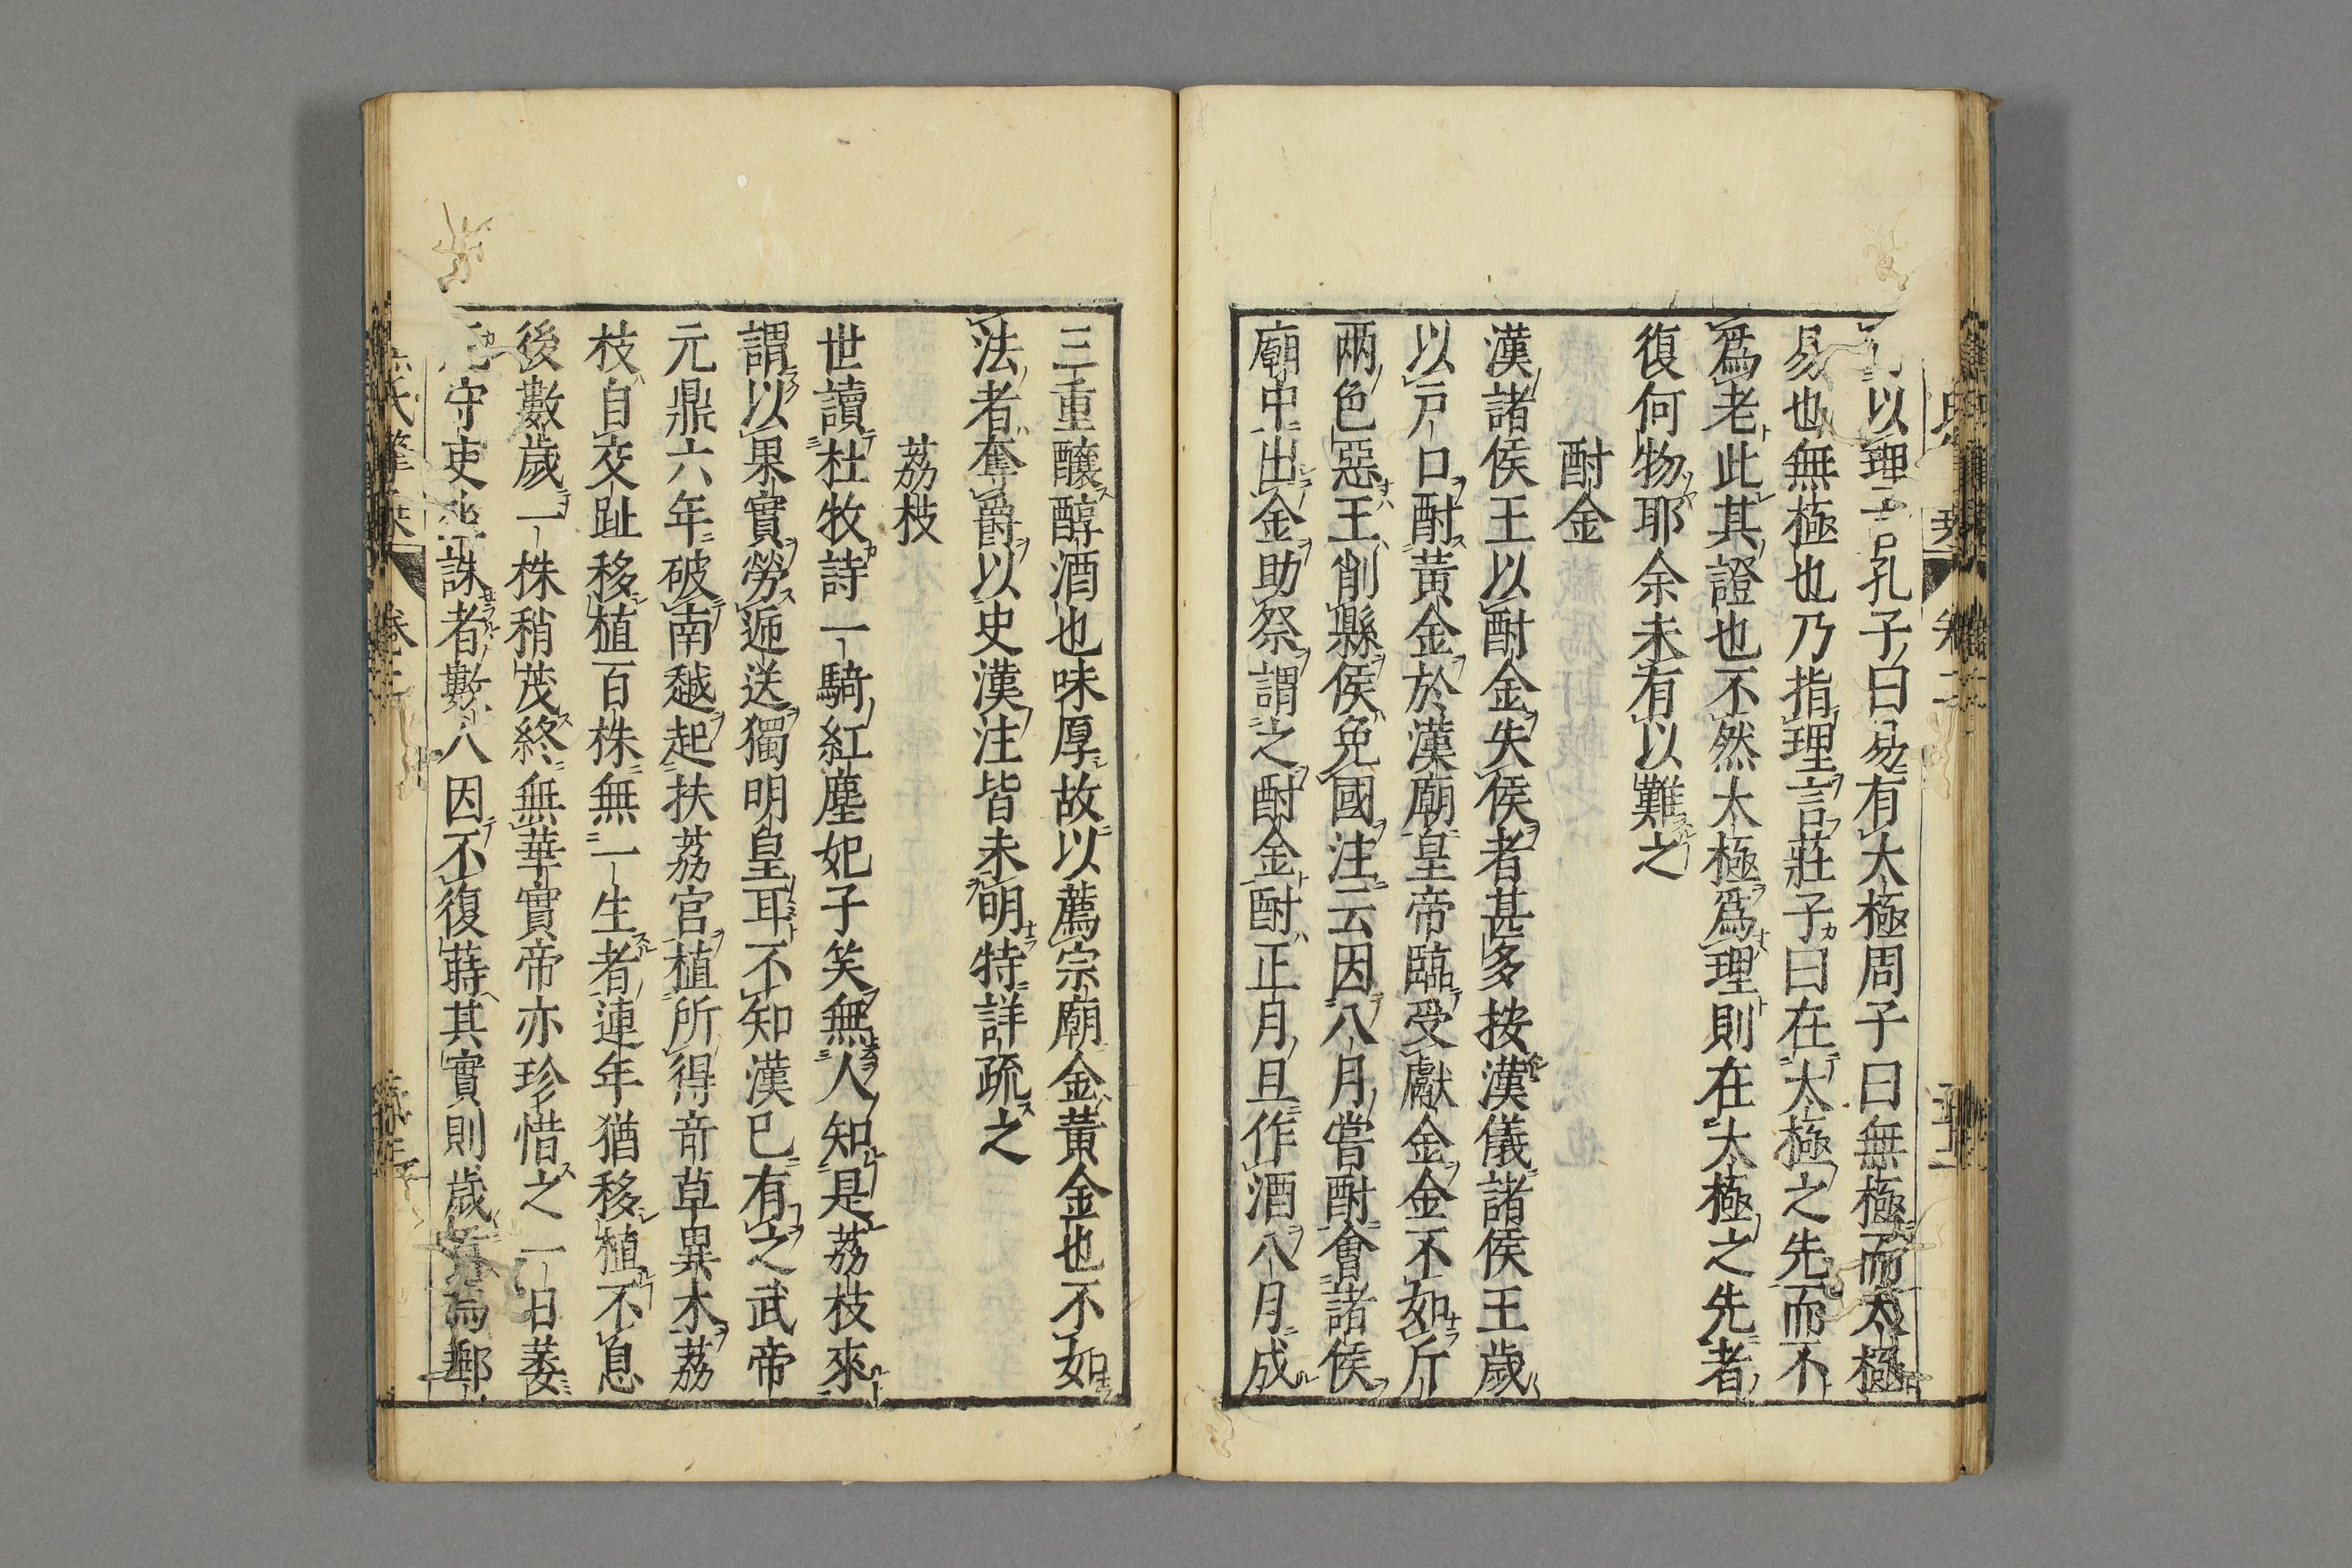 以理言孔子曰易有太極周子曰無極而太極
易也無極也乃指理言莊子曰在太極之先而不
爲老此其證也不然太極爲理則在太極之先者
復何物耶余未有以難之
酎金
漢諸侯王以酎金失侯者甚多按漢儀諸侯王歲
以戶口酎黃金於漢廟皇帝臨受獻金金不如斤
两色惡王削縣侯免國注云因八月嘗酎會諸侯
廟中出金助祭謂之酎金酎正月旦作酒八月成
三重釀醇酒也味厚故以薦宗廟金黃金也不如
法者奪爵以史漢注皆未明特詳疏之
荔枝
世讀杜牧詩一騎紅塵妃子笑無人知是荔枝來
謂以果實勞逓送獨明皇耳不知漢已有之武帝
元鼎六年破南越起扶荔官植所得竒草異木荔
枝自交趾移植百株無一生者連年猶移植不息
後數歲一株稍茂終無華實帝亦珍惜之一日萎
死守吏坐誅者數八因不復蒔其實則歲貢焉郵